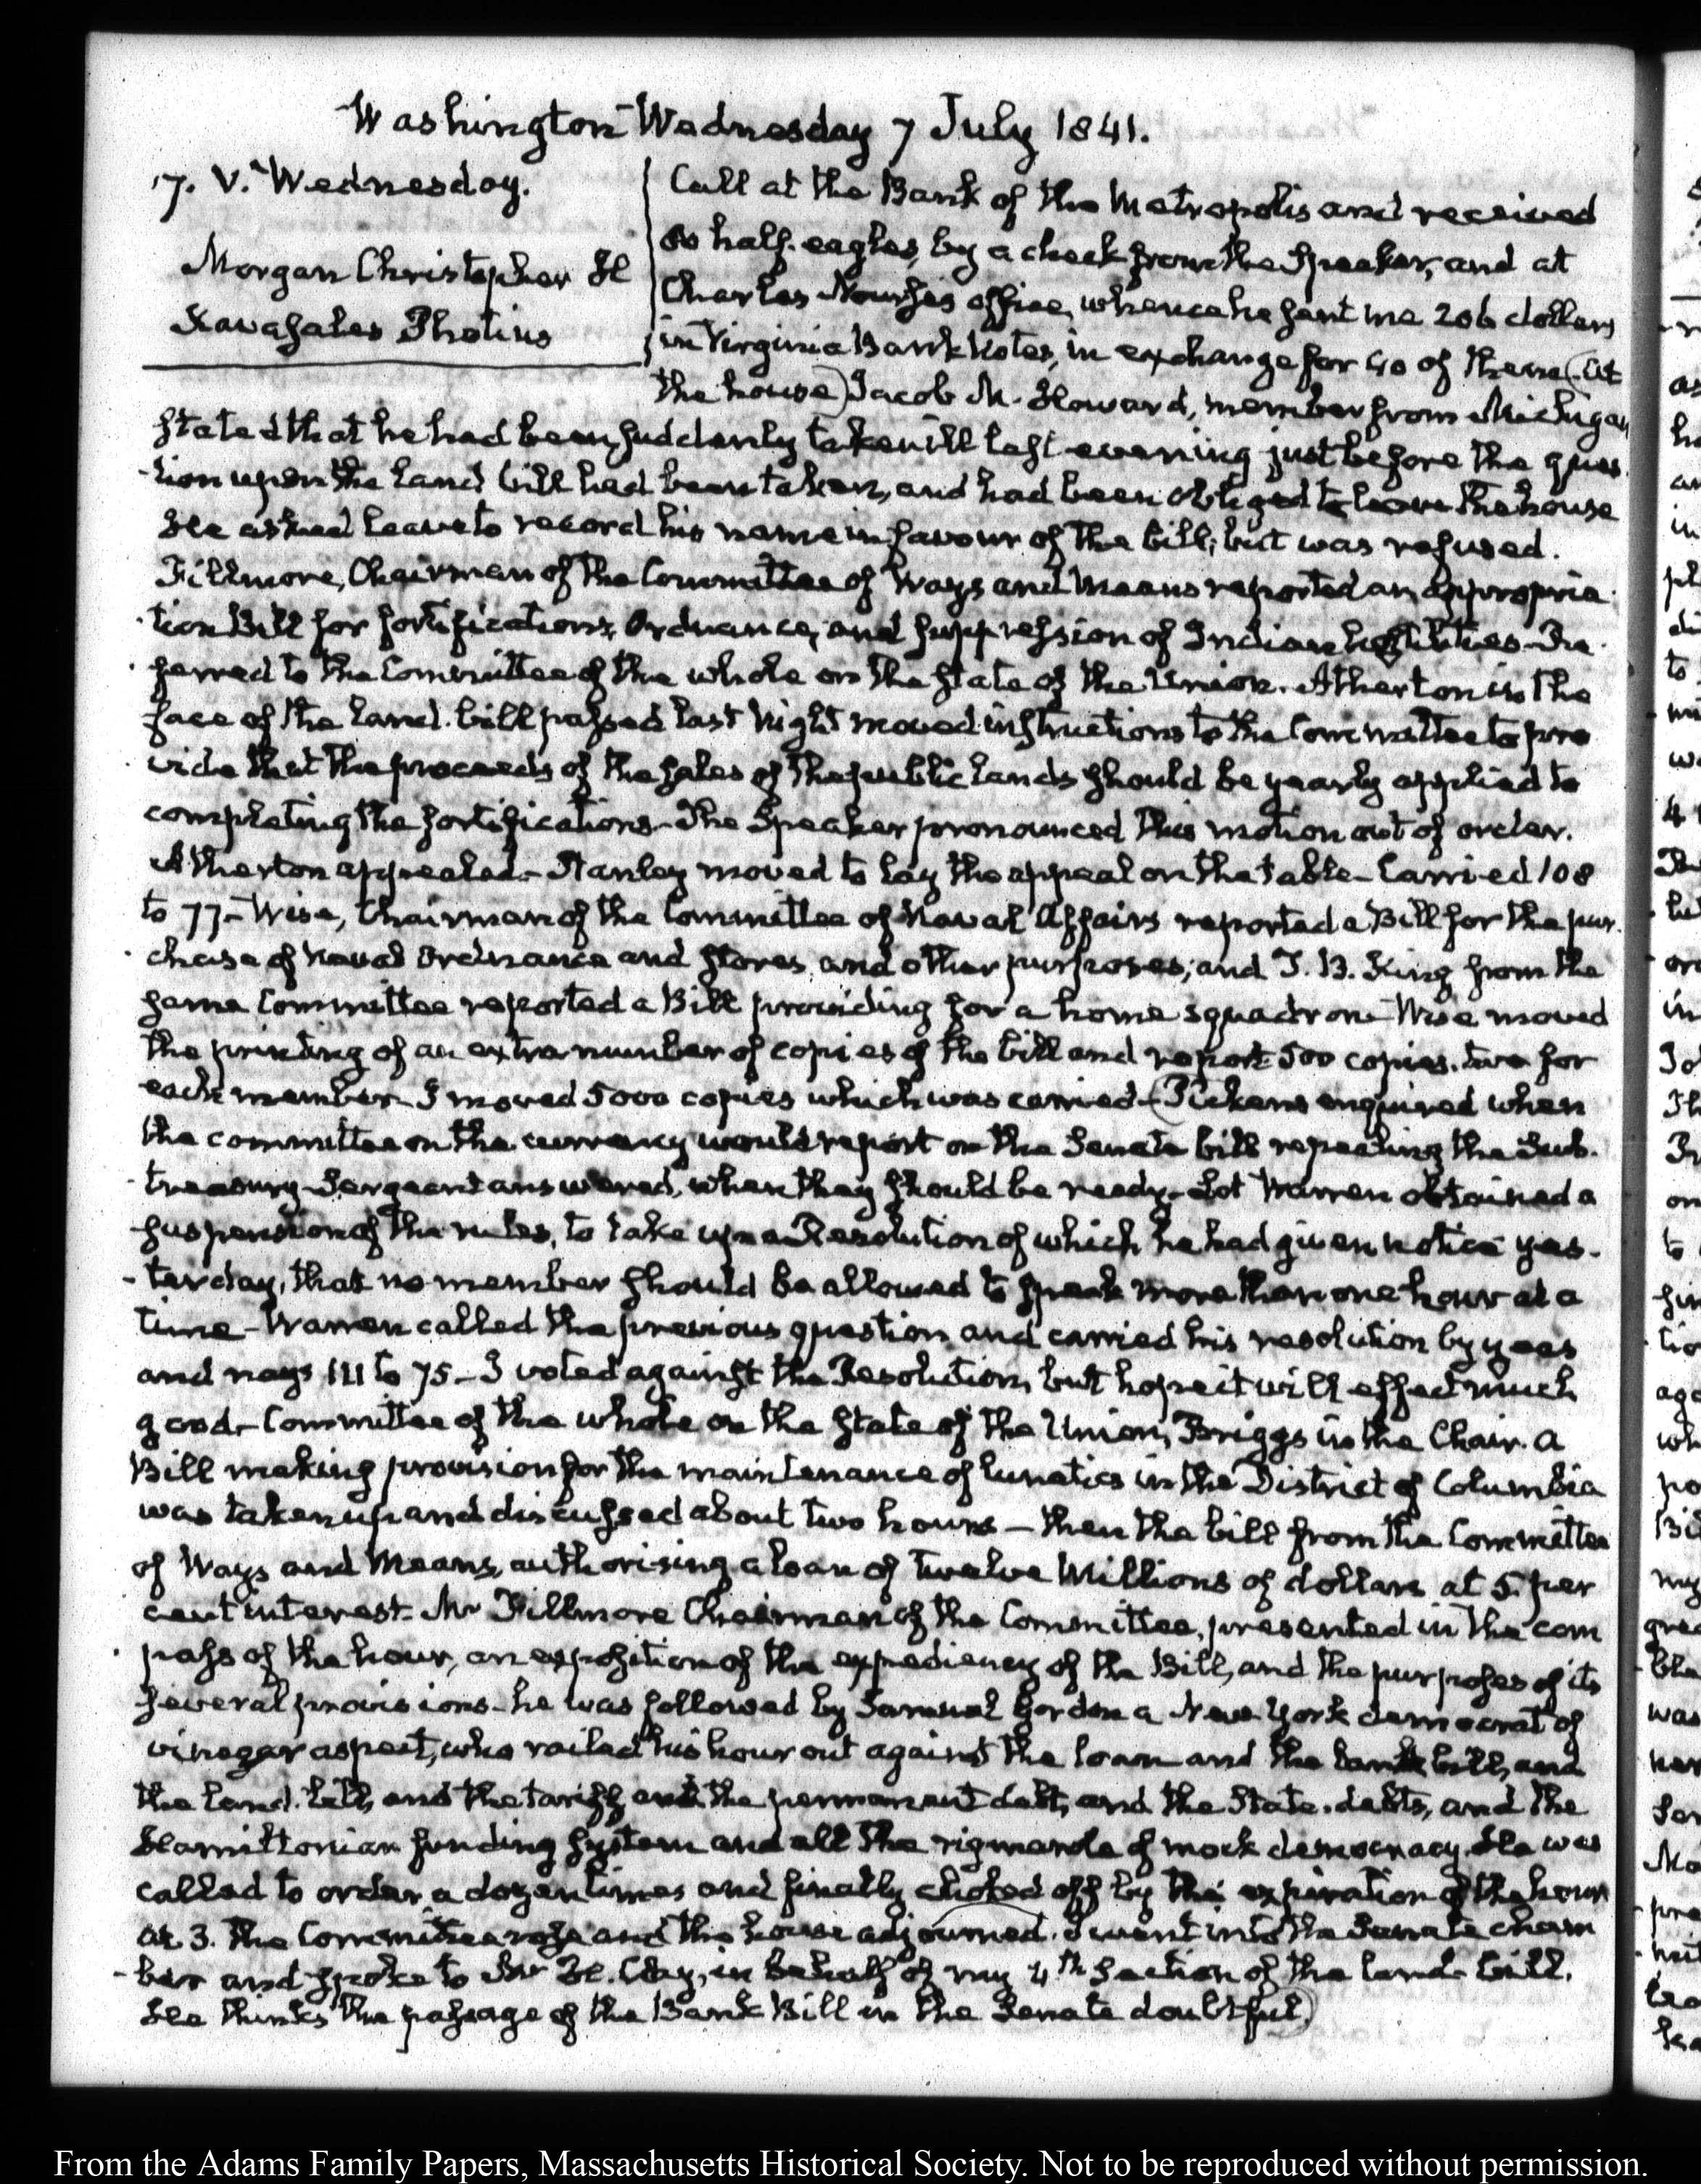 Washington Wednesday 7 July 1841.
7. V. Wednesday.
Morgan Christopher H
Kavasales Photius
Call at the Bank of the Metropolis and received
80 half-eagles, by a check from the Speaker, and at
Charles Nourse's office, whence he sent me 206 dollars
in Virginia Bank Notes, in exchange for 40 of them (At
the house) Jacob M. Howard, member from Michigan
stated that he had been suddenly taken ill last evening just before the ques
-tion upon the land bill had been taken, and had been obliged to leave the house
He asked leave to record his name in favour of the bill; but was refused.
Fillmore, Chairman of the Committee of Ways and Means reported an appropria
-tion Bill for fortifications, Ordnance, and suppression of Indian hostilities. Re
-ferred to the Committee of the whole on the state of the Union. Atherton in the
face of the land-bill passed last Night moved instructions to the Committee to pro
-vide that the proceeds of the sales of the public lands should be yearly applied to
completing the fortifications. The Speaker pronounced this motion out of order.
Atherton appealed. Stanley moved to lay the appeal on the table. Carried 108
to 77. Wise, Chairman of the Committee of Naval Affairs reported a Bill for the pur
-chase of Naval Ordnance and stores, and other purposes; and T. B. King from the
same Committee reported a Bill providing for a home squadron. Wise moved
the printing of an extra number of copies of the bill and report 500 copies. two for
each member. I moved 5000 copies which was carried. (Pickens enquired when
the committee on the currency would report on the Senate bill repealing the Sub.
-treasury. Sergeant answered, when they should be ready. Lot Warren obtained a
suspension of the rules, to take up a Resolution of which he had given notice yes.
-terday, that no member should be allowed to speak more than one hour at a
time. Warren called the previous question and carried his resolution by yeas
and nays 111 to 75. I voted against the Resolution, but hope it will effect much
good. Committee of the whole on the state of the Union, Briggs in the Chair. A
Bill making provision for the maintenance of lunatics in the District of Columbia
was taken up and discussed about two hours — then the bill from the Committee
of Ways and Means, authorising a loan of twelve Millions of dollars at 5 per
cent interest. Mr Fillmore Chairman of the Committee, presented in the com
-pass of the hour, an exposition of the expediency of the Bill, and the purposes of its
several provisions. he was followed by Samuel Gordon a New-York democrat of
vinegar aspect, who railed his hour out against the loan and the bank bill, and
the land-bill, and the tariff and the permanent debt, and the State-debts, and the
Hamiltonian funding system and all the rigmarole of mock democracy. He was
called to order a dozen times and finally choked off by the expiration of the hour
at 3. the Committee rose and the house adjourned. I went into the Senate cham
-ber and spoke to Mr H. Clay, in behalf of my 4th section of the land-bill.
He thinks the passage of the Bank Bill in the Senate doubtful)
From the Adams Family Papers, Massachusetts Historical Society. Not to be reproduced without permission.